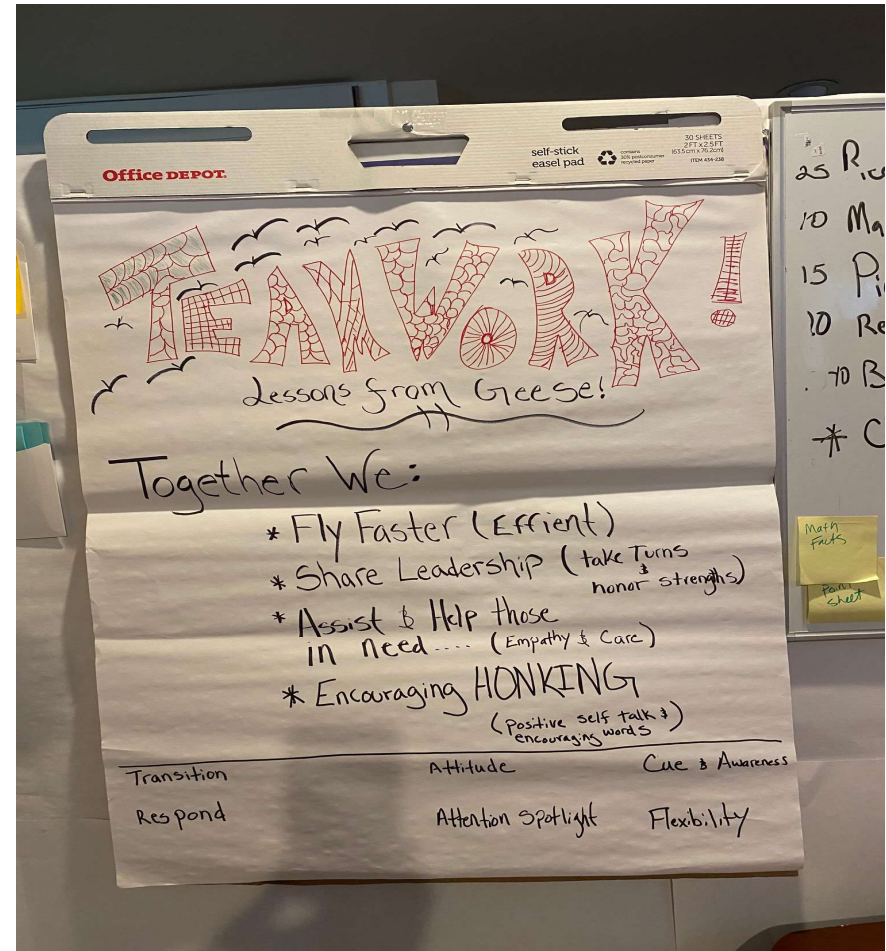 Office DEPOT.
self-stick
easel pad
contains
30% postconsumer
recycled paper
30 SHEETS
2 FT x 2.5 FT
(63.5 cm x 76.2 cm)
ITEM 434-238
TEAMWORK!
Lessons from Geese!
Together We:
* Fly Faster (Effient)
* Share Leadership (take Turns
& honor strengths)
* Assist & Help those
in need.... (Empathy & Care)
* Encouraging HONKING
(positive self talk &
encouraging words)
Transition Attitude Cue & Awareness
Respond Attention Spotlight Flexibility
25
10 Ma
15
10 Re
10 B
* C
Math
Facts
Sheet